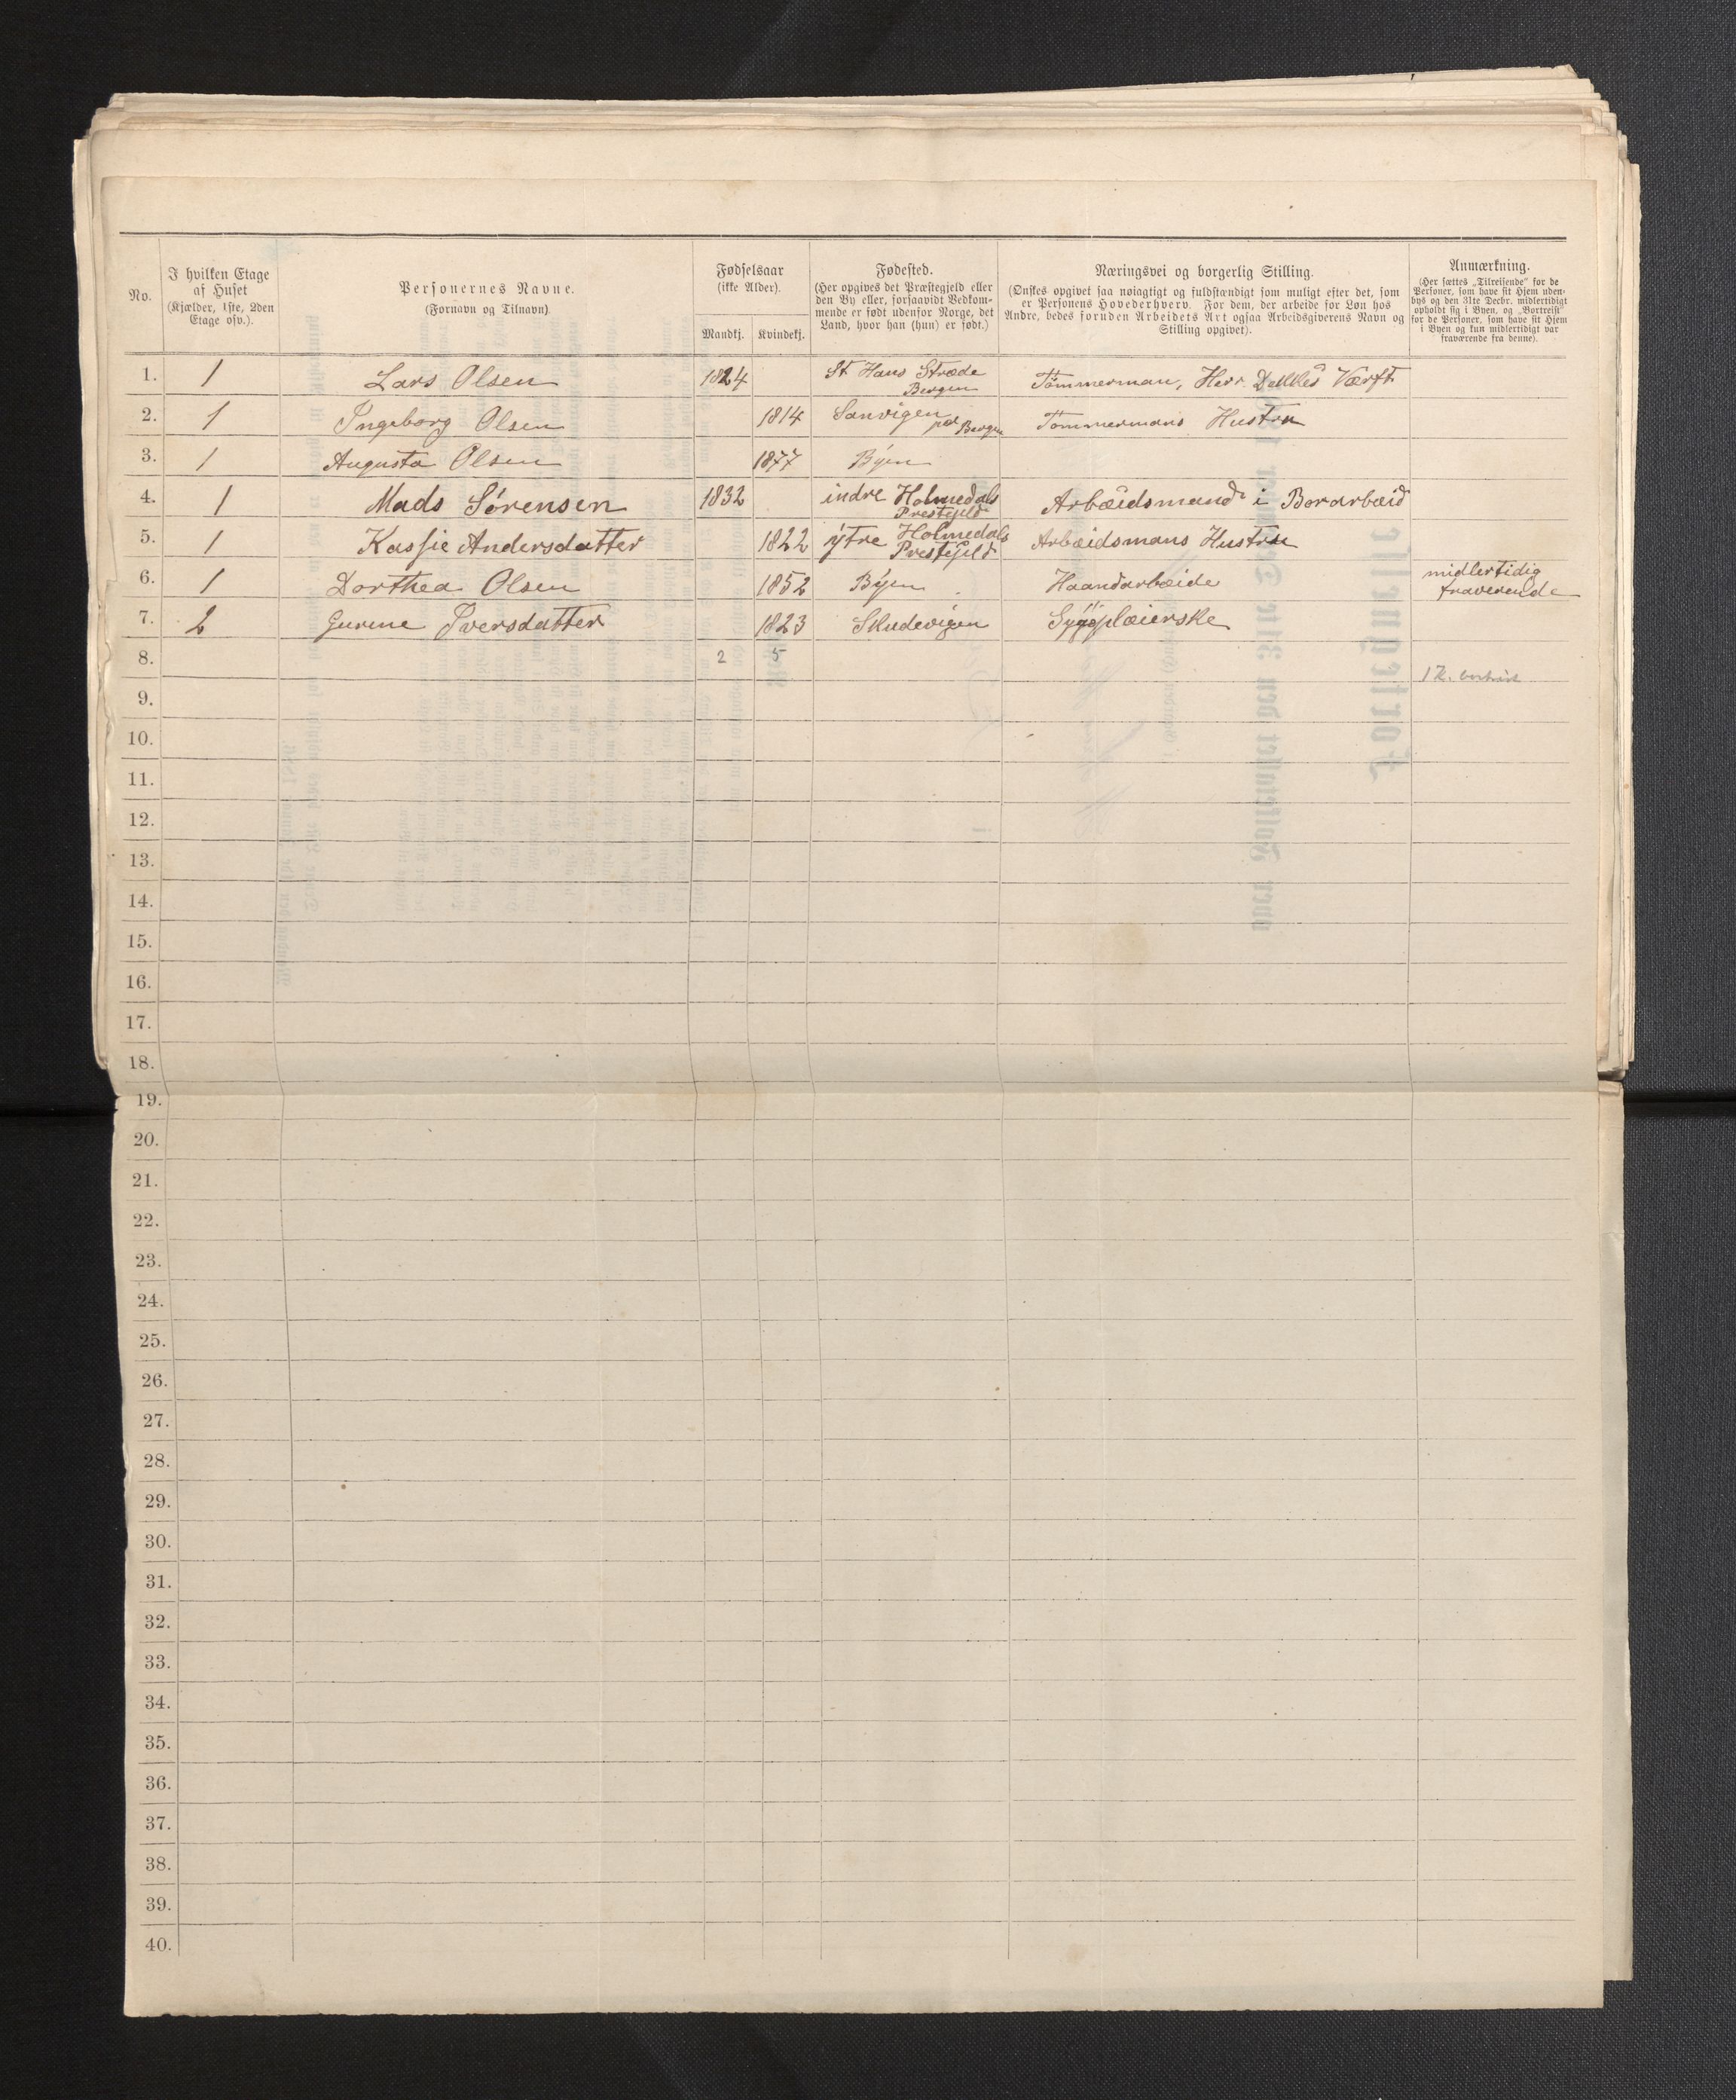 No.
I hvilken Etage
af Huset
(Kjælder, 1ste, 2den
Etage osv.).
Personernes Navne.
(Fornavn og Tilnavn)
Fødselsaar
(ikke Alder).
Mandkj. Kvindekj.
Fødested.
(Her opgives det Præstegjeld eller
den By eller, forsaavidt Vedkom-
mende er født udenfor Norge, det
Land, hvor han (hun) er født.)
Næringsvei og borgerlig Stilling.
(Ønskes opgivet saa nøiagtigt og fuldstændigt som muligt efter det, som
er Personens Hovederhverv. For dem, der arbeide for Løn hos
Andre, bedes foruden Arbeidets Art ogsaa Arbeidsgiverens Navn og
Stilling opgivet).
Anmærkning.
(Her sættes „Tilreisende“ for de
Personer, som have sit Hjem uden-
bys og den 31te Decbr. midlertidigt
opholdt sig i Byen, og „Bortreist“
for de Personer, som have sit Hjem
i Byen og kun midlertidigt var
fraværende fra denne).
1. 1 Lars Olsen 1824 St Hans Stræde
Bergen Tömmerman, Herr. Dekkes Værft
2. 1 Ingeborg Olsen 1814 Sanvigen paa Bergen Tömmermans Hustru
3. 1 Augusta Olsen 1877 Býen
4. 1 Mads Sörensen 1832 indre Holmedals
Prestejeld Arbæidsmand i Borarbæid
5. 1 Kassie Andersdatter 1822 ýtre Holmedals
Prestejeld Arbæidsmans Hustru
6. 1 Dorthea Olsen 1852 Býen Haandarbæide midlertidig
fraverende
7. 2 Gurine Iversdatter 1823 Skudevigen Sýgeplæierske
8. 2 5
1 K. bortreist
9.
10.
11.
12.
13.
14.
15.
16.
17.
18.
19.
20.
21.
22.
23.
24.
25.
26.
27.
28.
29.
30.
31.
32.
33.
34.
35.
36.
37.
38.
39.
40.